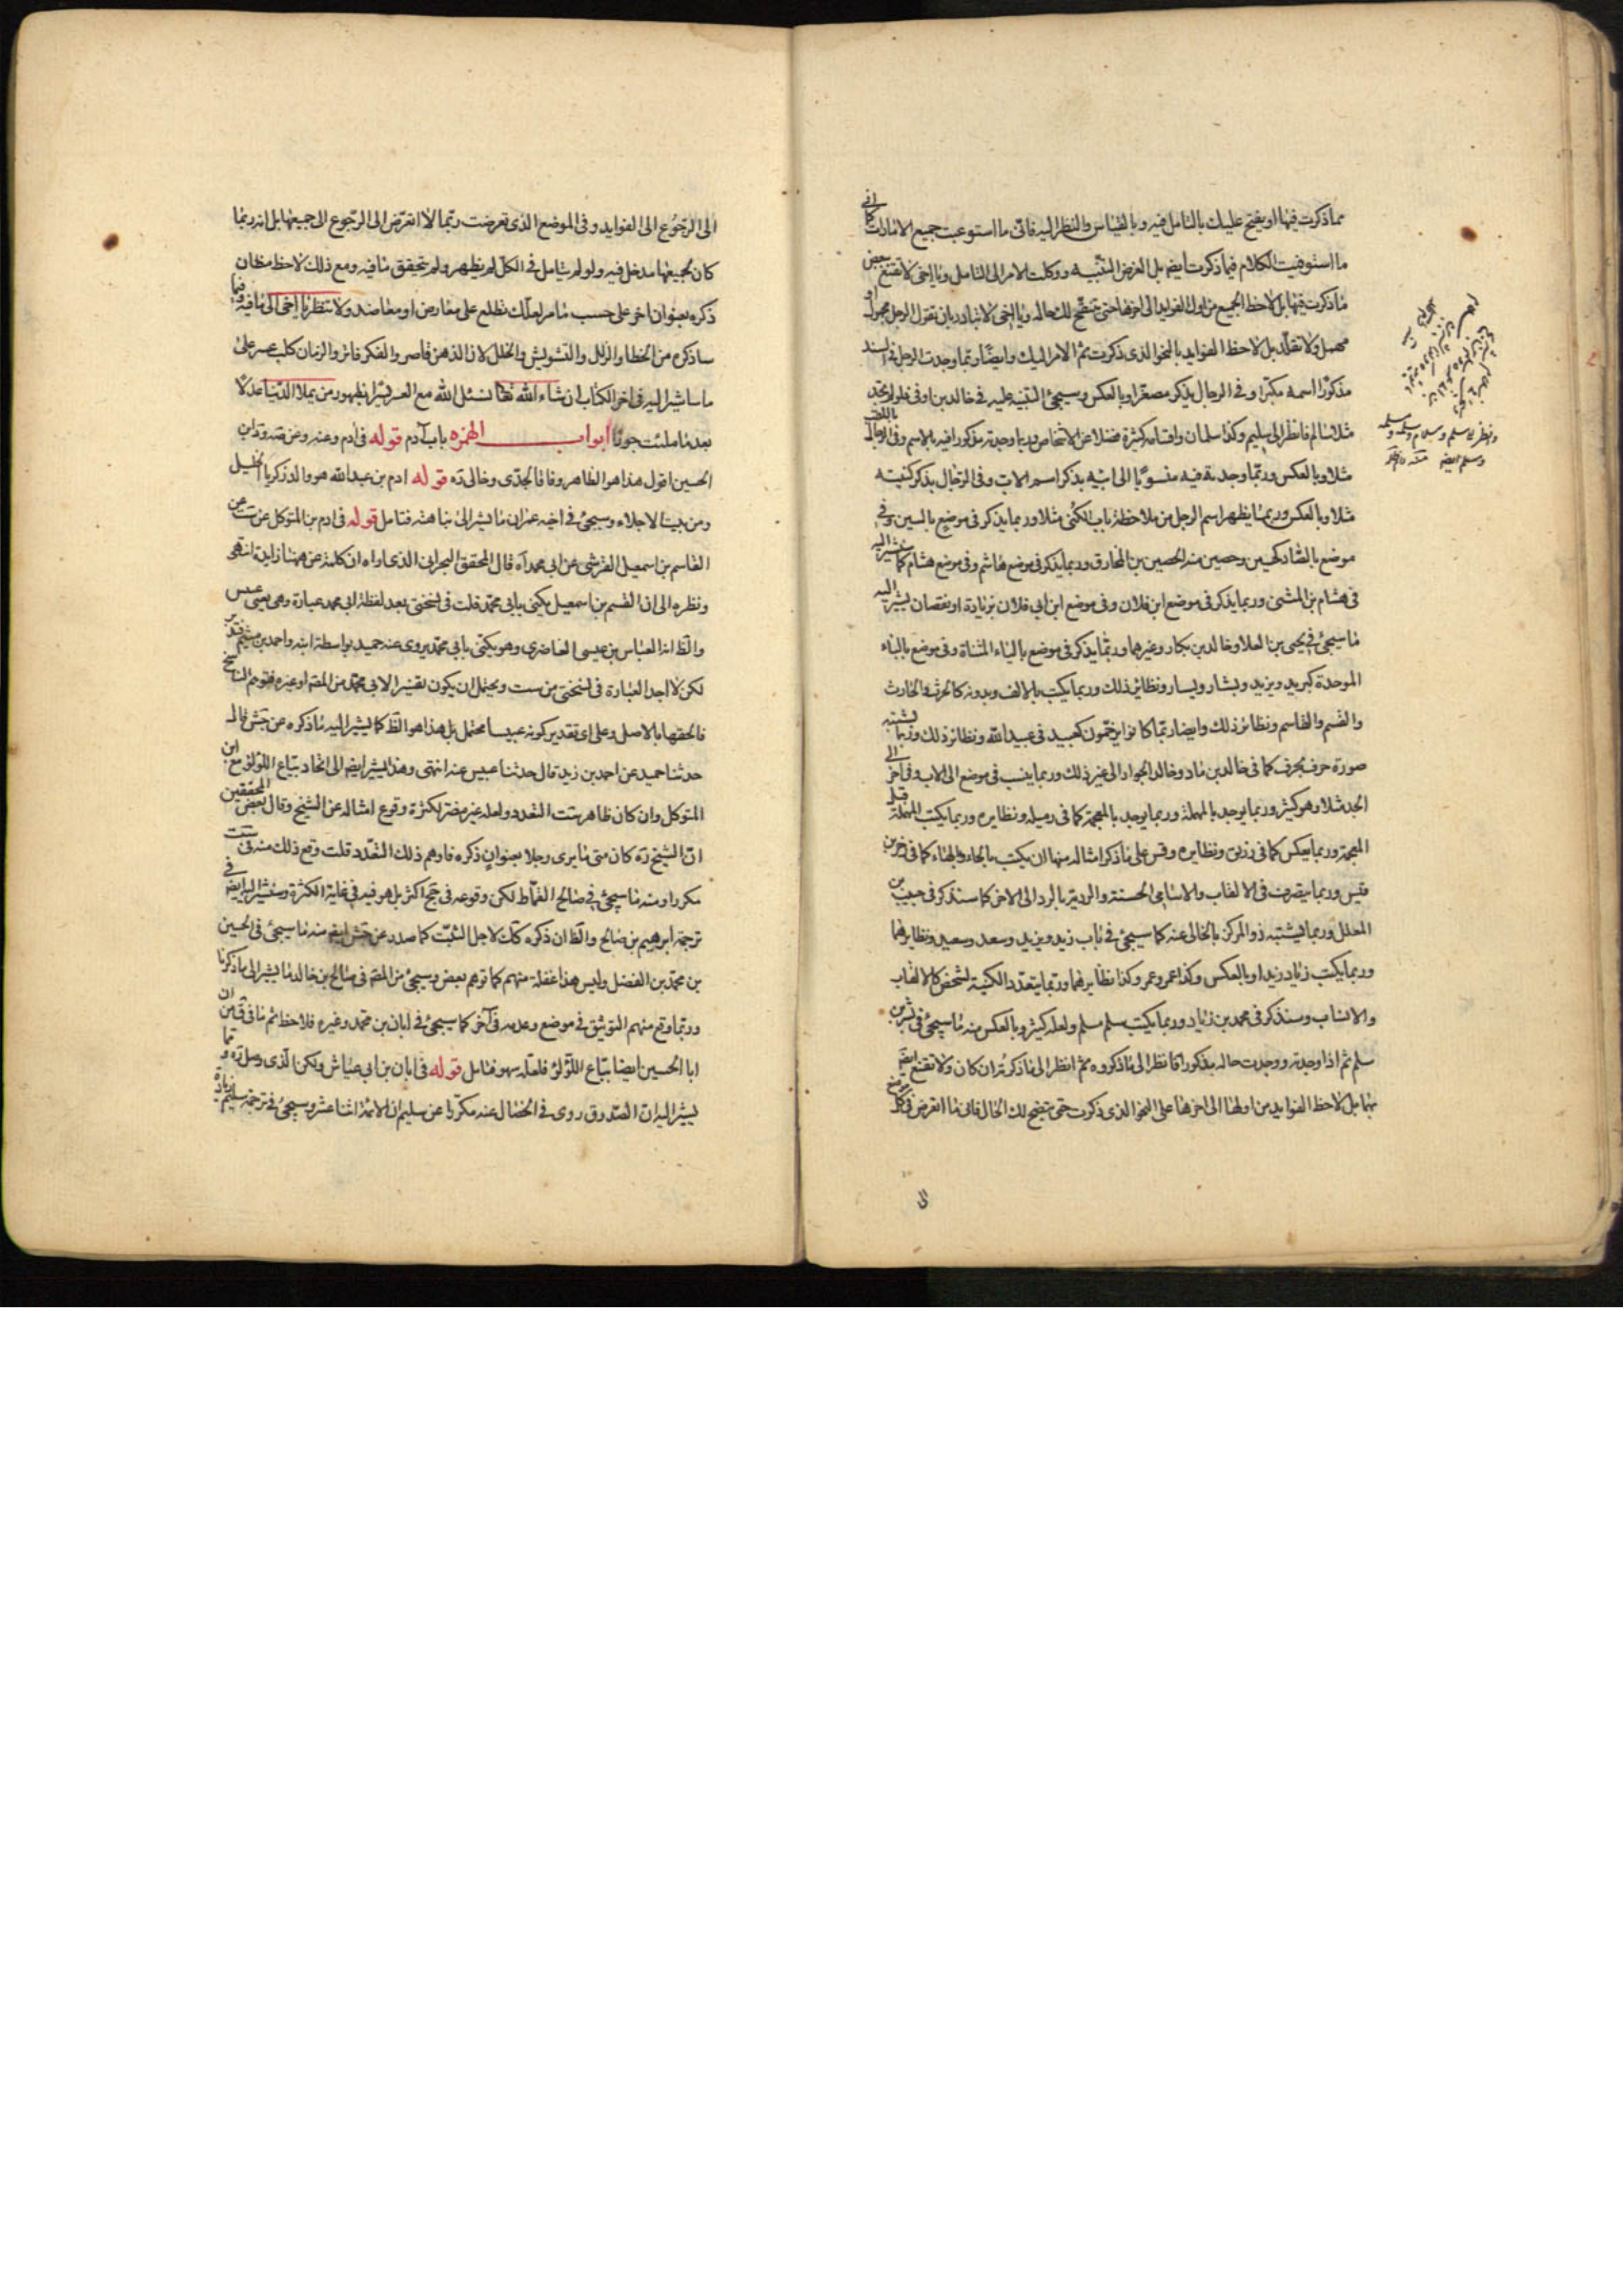 مما ذكرت فيها او يفتح عليك بالتامل فيه وبالقياس والنظر اليه فانى ما استوعبت جميع الامارات كما انى
ما استوفيت الكلام فيما ذكرت ايضم بل الغرض التنبيه ووكلت الامر الى التامل ويا اخى لا تقنع ببعض
ما ذكرت فيها بل لاحظ الجميع من اول الفوايد الى اخرها حتى يتضح لك حاله ويا اخى لا تبادر بان تقول الرجل مجهول او
مهمل ولا تقلّد بل لاحظ الفوايد بالنحو الذى ذكرت ثم الامر اليك وايضًا ربّما وجدت الرجل فى السند
مذكورًا اسمه مكبّرا وفى الرجال يذكر مصغرا وبالعكس وسيجئ التنبيه عليه فى خالد بن اوفى فلو لم تجد
مثلا سالم فانظر الى سليم وكذا سلمان واقسامه كثيرة فضلا عن الاشخاص وربما وجدته مذكورا فيه بالاسم وفى الرجال باللقب
مثلا وبالعكس وربّما وجدته فيه منسوبًا الى ابيه بذكر اسم الاب وفى الرجال بذكر كنيته
مثلا وبالعكس وربما يظهر اسم الرجل من ملاحظة باب الكنى مثلا وربما يذكر فى موضع بالسين وفى
موضع بالصاد كحسين وحصين منه الحصين بن المخارق وربما يذكر فى موضع هاشم وفى موضع هشام كما سنشير اليه
فى هشام بن المثنى وربما يذكر فى موضع ابن فلان وفى موضع ابن ابى فلان بزيادة او نقصان يشير اليه
ما سيجئ فى يحيى بن العلا وخالد بن بكار وغيرهما وربّما يذكر فى موضع بالياء المثناة وفى موضع بالباء
الموحدة كبريد ويزيد وبشار ويسار ونظائر ذلك وربما يكتب بالالف وبدونه كالحرث والحارث
والقسم والقاسم ونظائر ذلك وايضا ربّما كانوا يرخّمون كعبيد فى عبيد الله ونظائر ذلك وربما يشتبه
صورة حرف بحرف كما فى خالد بن ماد وخالد الجواد الى غير ذلك وربما ينسب فى موضع الى الاب وفى اخر الى
الجد مثلا وهو كثير وربما يوجد بالمهملة وربما يوجد بالمعجمة كما فى رميله ونظايره وربما يكتب المهملة قبل
المعجمة وربما يعكس كما فى رزيق ونظايره وقس على ما ذكر امثاله منها ان يكتب بالحاء وبالهاء كما فى زحر بن
قيس وربما يتصرف فى الالقاب والاسامى الحسنة والرديّة بالرد الى الاخر كما سنذكر فى حبيب بن
المعلل وربما يشتبه ذو المركز بالخالى عنه كما سيجئ فى باب زيد ويزيد وسعد وسعيد ونظايرهما
وربما يكتب زياد زيدا وبالعكس وكذا عمر وعمرو وكذا نظايرهما وربّما يتعدّد الكنية لشخص كالالقاب
والانساب وسنذكر فى محمد بن زياد وربما يكتب سلم مسلم ولعله كثير وبالعكس منه ما سيجئ فى بشر بن
سلم ثم اذا وجدته ووجدت حاله مذكورا فانظر الى ما ذكروه ثم انظر الى ما ذكرته ان كان ولا تقنع ايضم
بهما بل لاحظ الفوايد من اولها الى اخرها على النحو الذى ذكرت حتى يتضح لك الحال فانى ما اتعرض فى كل موضع
الى
الى الرجوع الى الفوايد وفى الموضع الذى تعرضت ربّما لا اتعرّض الى الرجوع الى جميعها بل انه ربما
كان لجميعها مدخل فيه ولو لم يتامل فى الكل لم يظهر ولم يتحقق ما فيه ومع ذلك لاحظ مظان
ذكره بعنوان اخر على حسب ما مر لعلّك تطلع على معارض او معاضد ولا تنتظر يا اخى الى ما فيه وفيما
ساذكره من الخطا والزلل والتشويش والخلل لان الذهن قاصر والفكر فاتر والزمان كلب عسر على
ما ساشير اليه فى اخر الكتاب ان شاء الله تعالى نسئل الله مع العسر يسرا بظهور من يملا الدّنيا عدلا
بعد ما ملئت جورًا ابواب الهمزه باب آدم قوله فى آدم وعنه وعن صه ود ابن
الحسين اقول هذا هو الظاهر وفاقا لجدّى وخالى ره قوله ادم بن عبد الله هو والد زكريا الجليل
ومن بيت الاجلاء وسيجئ فى اخيه عمران ما يشير الى نباهته فتامل قوله فى ادم بن المتوكل عن ست عن
القاسم بن اسمعيل القرشى عن ابى محمد آه قال المحقق البحرانى الذى اراه ان كلمة عن هنا زايدة انتهى
ونظره الى ان القسم بن اسمعيل يكنى بابى محمّد قلت فى نسختى بعد لفظة ابى محمد عبارة وهى يعنى عبيس
والظ انه العباس بن عيسى الغاضرى وهو يكنى بابى محمّد يروى عنه حميد بواسطة ابنه واحمد بن ميثم
لكن لا اجد العبارة فى نسختى من ست ويحتمل ان يكون تفسيرا لابى محمّد من المصم او غيره فتوهم الناسخ
فالحقها بالاصل وعلى اى تقدير كونه عبيسا محتمل بل هذا هو الظ كما يشير اليه ما ذكره عن جش قال
حدثنا حميد عن احمد بن زيد قال حدثنا عبيس عنه انتهى وهذا يشير ايضم الى اتحاد بيّاع اللؤلؤ مع ابن
المتوكل وان كان ظاهر ست التعدد ولعله غير مضر لكثرة وقوع امثاله عن الشيخ وقال بعض المحققين
انّ الشيخ ره كان متى ما يرى رجلا بعنوان ذكره فاوهم ذلك التعدّد قلت وقع ذلك منه فى ست
مكررا ومنه ما سيجئ فى صالح القمّاط لكن وقوعه فى جخ اكثر بل هو فيه فى غاية الكثرة وسنشير اليه ايضم فى
ترجمة ابرهيم بن صالح والظ ان ذكره كك لاجل التثبّت كما صدر عن جش ايضم منه ما سيجئ فى الحسين
بن محمّد بن الفضل وليس هذا غفلة منهم كما توهم بعض وسيجئ من المصم فى صالح بن خالد ما يشير الى ما ذكرنا
وربّما وقع منهم التوثيق فى موضع وعدمه فى آخر كما سيجئ فى ابان بن محمّد وغيره فلاحظ ثم ما فى ق من ان
ابا الحسين ايضا بيّاع اللّؤلؤ فلعلّه سهو فتامل قوله فى ابان بن ابى عيّاش ولكن الّذى وصل
يشير اليه ان الصّدوق روى فى الخصال عنه مكرّرا عن سليم ان الائمة اثنا عشر وسيجئ فى ترجمة سليم زيادة